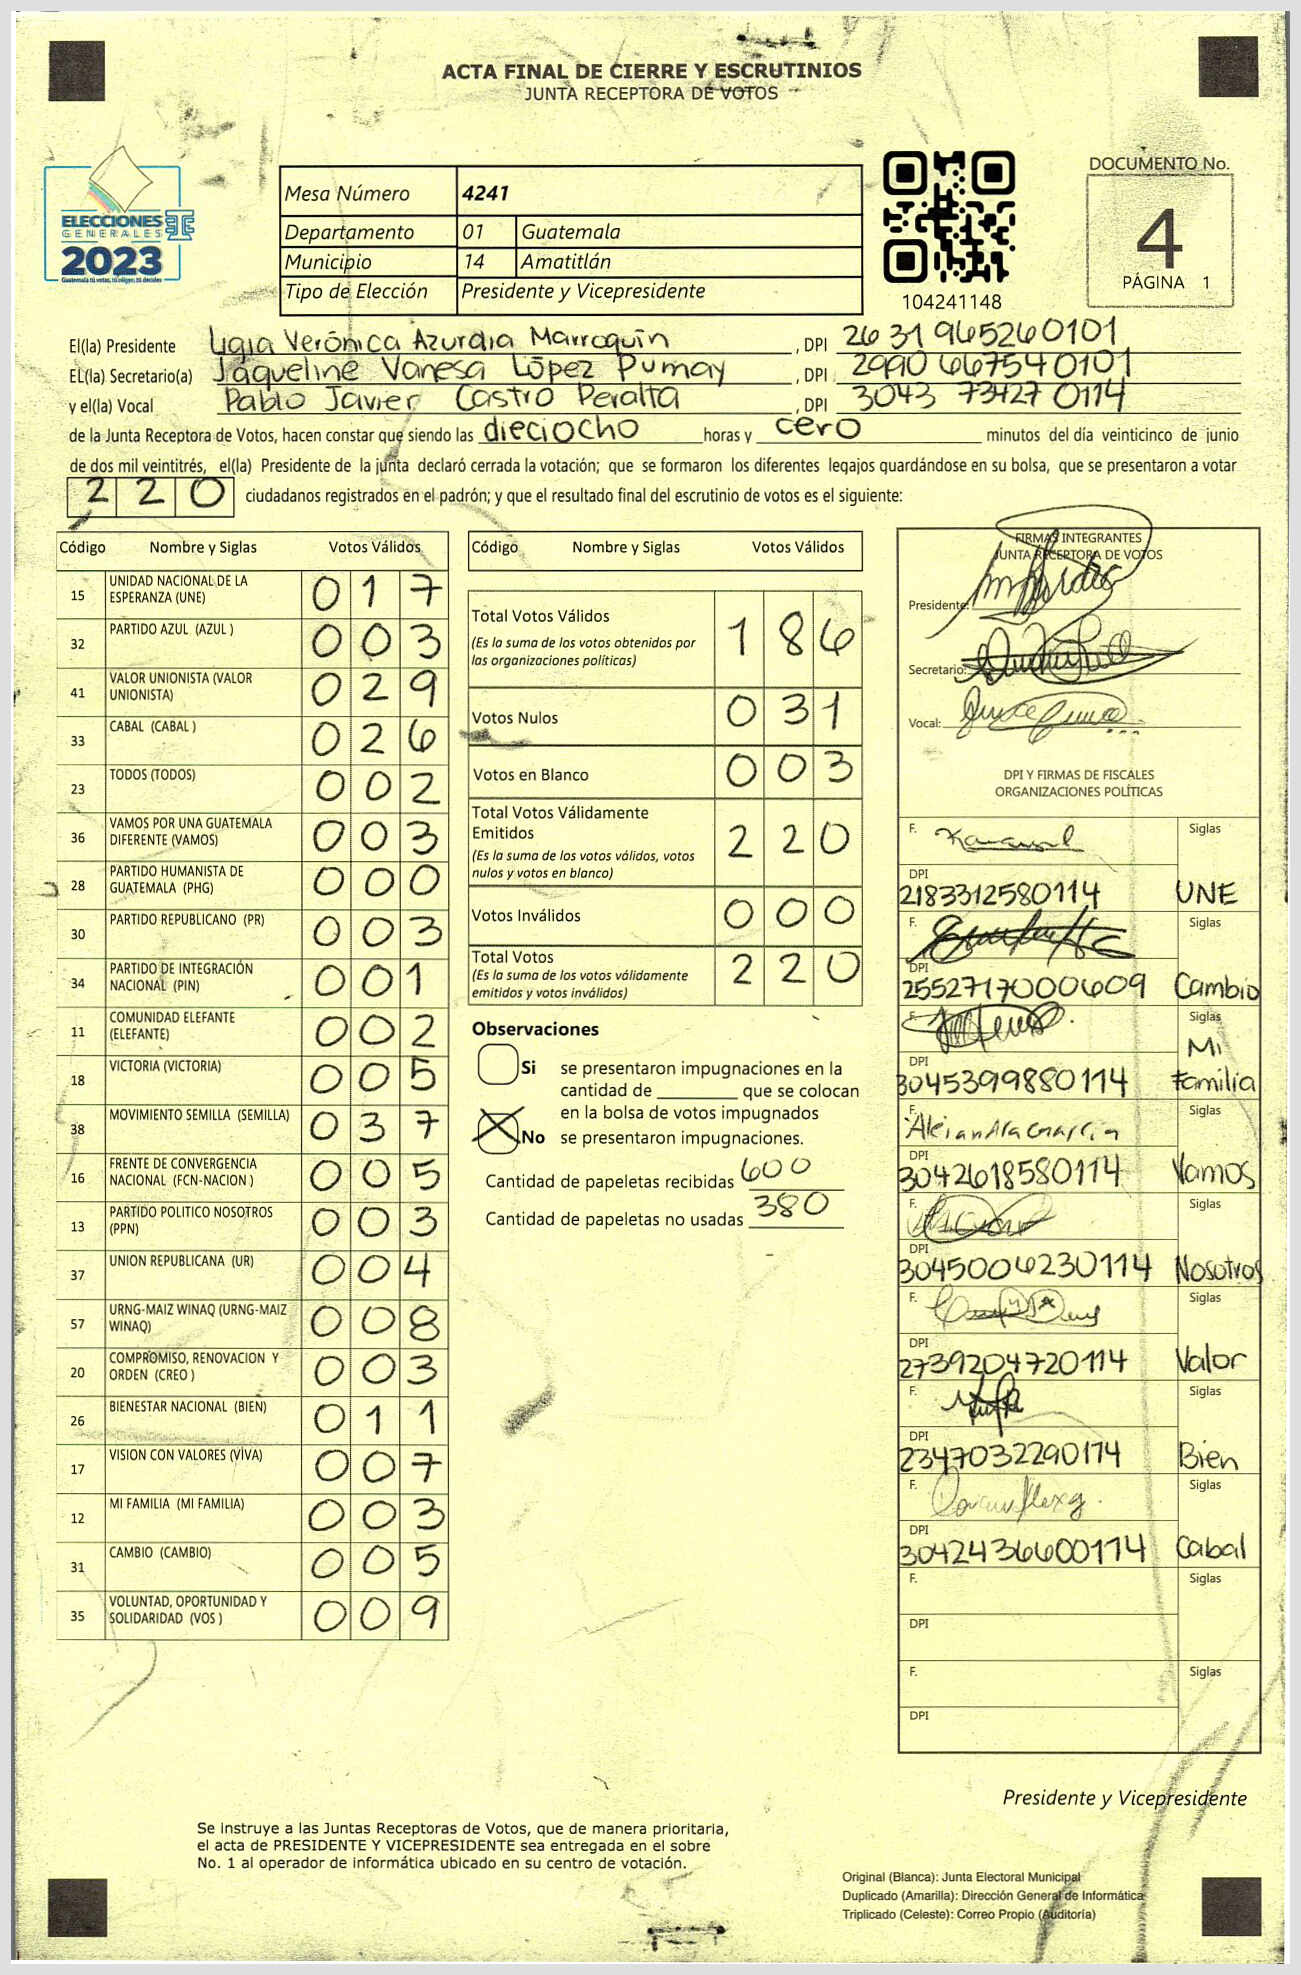 ACTA FINAL DE CIERRE Y ESCRUTINIOS
JUNTA RECEPTORA DE VOTOS
ELECCIONES
GENERALES
2023
Guatemala tú votas, tú eliges, tú decides
Mesa Número 4241
Departamento 01 Guatemala
Municipio 14 Amatitlán
Tipo de Elección Presidente y Vicepresidente
104241148
DOCUMENTO No.
4
PÁGINA 1
El(la) Presidente Ligia Verónica Azurdia Marroquín, DPI 2631965260101
EL(la) Secretario(a) Jaqueline Vanesa López Pumay, DPI 2990667540101
y el(la) Vocal Pablo Javier Castro Peralta, DPI 3043 73427 0114
de la Junta Receptora de Votos, hacen constar que siendo las dieciocho horas y cero minutos del día veinticinco de junio
de dos mil veintitrés, el(la) Presidente de la junta declaró cerrada la votación; que se formaron los diferentes legajos guardándose en su bolsa, que se presentaron a votar
220 ciudadanos registrados en el padrón; y que el resultado final del escrutinio de votos es el siguiente:
Código Nombre y Siglas Votos Válidos
15 UNIDAD NACIONAL DE LA ESPERANZA (UNE) 017
32 PARTIDO AZUL (AZUL ) 003
41 VALOR UNIONISTA (VALOR UNIONISTA) 029
33 CABAL (CABAL ) 026
23 TODOS (TODOS) 002
36 VAMOS POR UNA GUATEMALA DIFERENTE (VAMOS) 003
28 PARTIDO HUMANISTA DE GUATEMALA (PHG) 000
30 PARTIDO REPUBLICANO (PR) 003
34 PARTIDO DE INTEGRACIÓN NACIONAL (PIN) 001
11 COMUNIDAD ELEFANTE (ELEFANTE) 002
18 VICTORIA (VICTORIA) 005
38 MOVIMIENTO SEMILLA (SEMILLA) 037
16 FRENTE DE CONVERGENCIA NACIONAL (FCN-NACION ) 005
13 PARTIDO POLITICO NOSOTROS (PPN) 003
37 UNION REPUBLICANA (UR) 004
57 URNG-MAIZ WINAQ (URNG-MAIZ WINAQ) 008
20 COMPROMISO, RENOVACION Y ORDEN (CREO ) 003
26 BIENESTAR NACIONAL (BIEN) 011
17 VISION CON VALORES (VIVA) 007
12 MI FAMILIA (MI FAMILIA) 003
31 CAMBIO (CAMBIO) 005
35 VOLUNTAD, OPORTUNIDAD Y SOLIDARIDAD (VOS ) 009
Código Nombre y Siglas Votos Válidos
Total Votos Válidos 186
(Es la suma de los votos obtenidos por las organizaciones políticas)
Votos Nulos 031
Votos en Blanco 003
Total Votos Válidamente Emitidos 220
(Es la suma de los votos válidos, votos nulos y votos en blanco)
Votos Inválidos 000
Total Votos 220
(Es la suma de los votos válidamente emitidos y votos inválidos)
Observaciones
Si se presentaron impugnaciones en la
cantidad de ________ que se colocan
en la bolsa de votos impugnados
No se presentaron impugnaciones.
Cantidad de papeletas recibidas 600
Cantidad de papeletas no usadas 380
FIRMAS INTEGRANTES
JUNTA RECEPTORA DE VOTOS
Presidente:
Secretario:
Vocal:
DPI Y FIRMAS DE FISCALES
ORGANIZACIONES POLÍTICAS
F. Siglas
DPI 2183312580114 UNE
F. Siglas
DPI 2552717000609 Cambio
F. Siglas
DPI 3045399880114 Mi Familia
F. Siglas
DPI 3042618580114 Vamos
F. Siglas
DPI 3045006230114 Nosotros
F. Siglas
DPI 2739204720114 Valor
F. Siglas
DPI 2347032290114 Bien
F. Siglas
DPI 3042436600114 Cabal
F. Siglas
DPI
F. Siglas
DPI
Presidente y Vicepresidente
Se instruye a las Juntas Receptoras de Votos, que de manera prioritaria,
el acta de PRESIDENTE Y VICEPRESIDENTE sea entregada en el sobre
No. 1 al operador de informática ubicado en su centro de votación.
Original (Blanca): Junta Electoral Municipal
Duplicado (Amarilla): Dirección General de Informática
Triplicado (Celeste): Correo Propio (Auditoría)